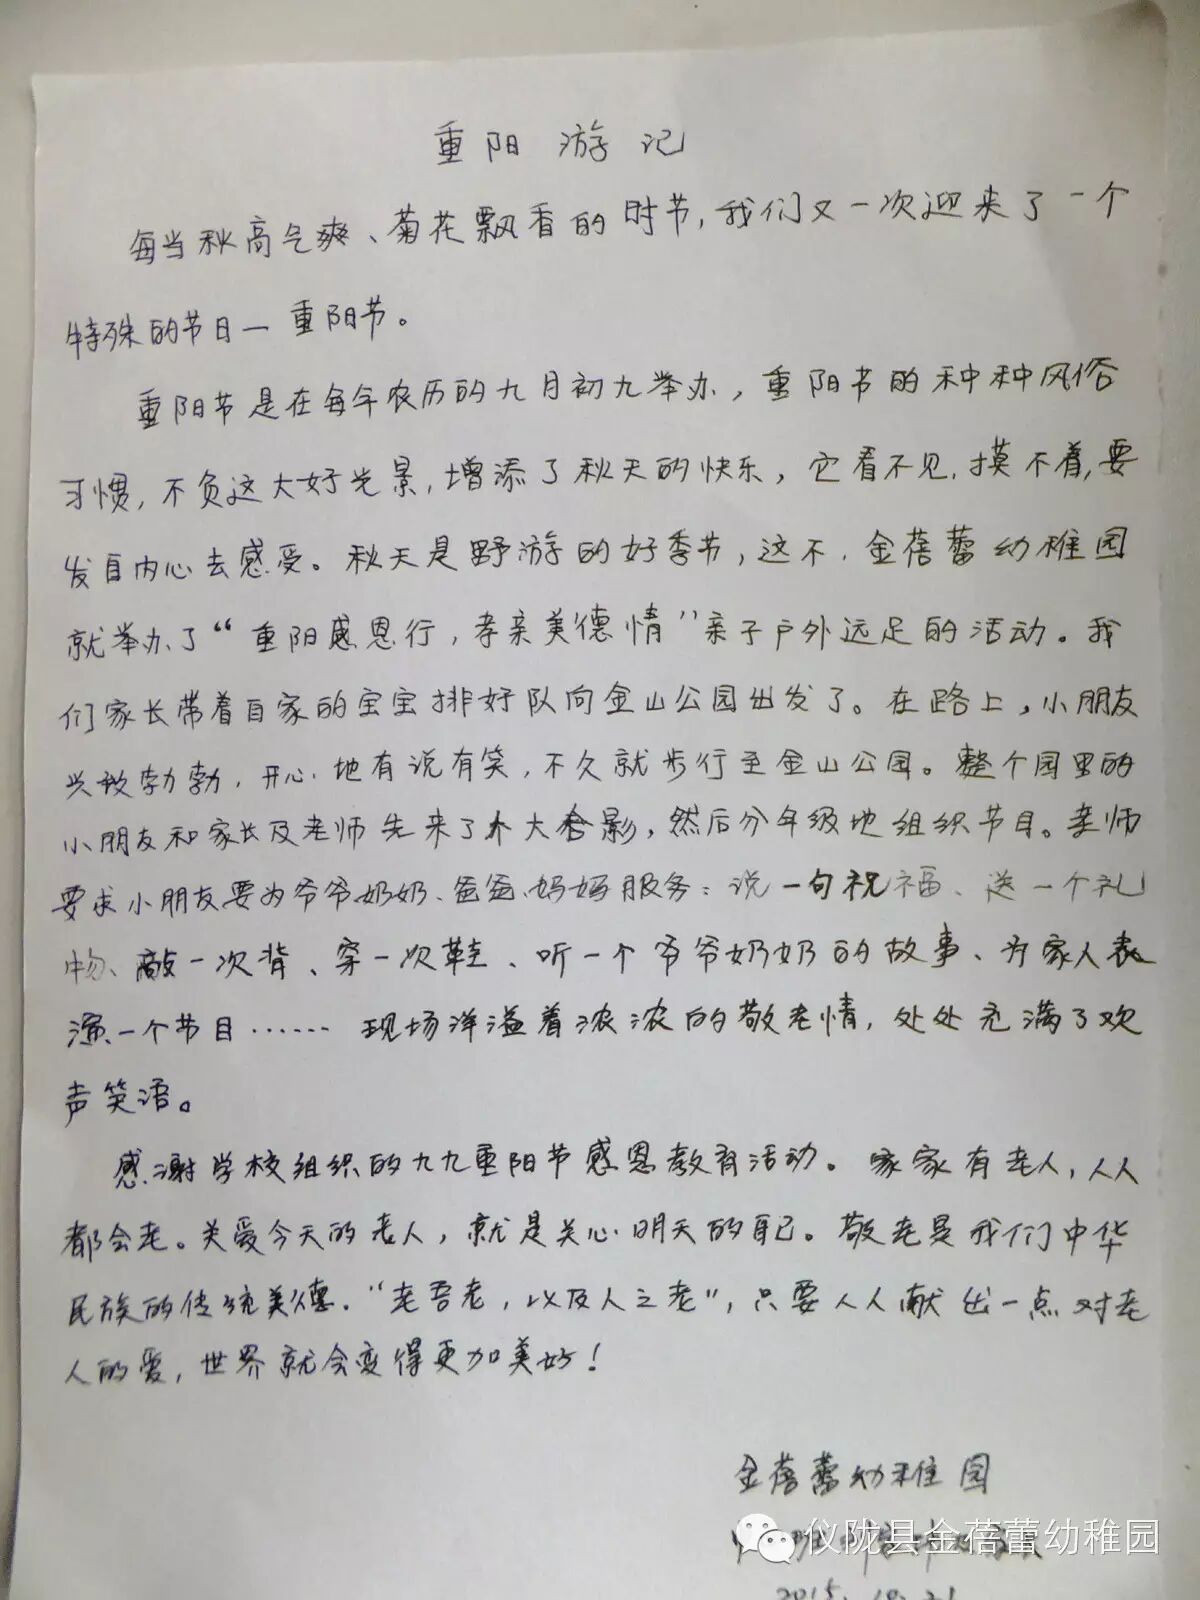 重阳游记
每当秋高气爽、菊花飘香的时节,我们又一次迎来了一个
特殊的节日一重阳节。
重阳节是在每年农历的九月初九举办,重阳节的种种风俗
习惯,不负这大好光景,增添了秋天的快乐,它看不见,摸不着,要
发自内心去感受。秋天是野游的好季节,这不,金蓓蕾幼稚园
就举办了“重阳感恩行,孝亲美德情”亲子户外远足的活动。我
们家长带着自家的宝宝排好队向金山公园出发了。在路上,小朋友
兴致勃勃,开心地有说有笑,不久就步行至金山公园。整个园里的
小朋友和家长及老师先来了个大合影,然后分年级地组织节目。老师
要求小朋友要为爷爷奶奶、爸爸妈妈服务:说一句祝福、送一个礼
物、敲一次背、穿一次鞋、听一个爷爷奶奶的故事、为家人表
演一个节目……现场洋溢着浓浓的敬老情,处处充满了欢
声笑语。
感谢学校组织的九九重阳节感恩教育活动。家家有老人,人人
都会老。关爱今天的老人,就是关心明天的自己。敬老是我们中华
民族的传统美德。“老吾老,以及人之老”,只要人人献出一点对老
人的爱,世界就会变得更加美好!
金蓓蕾幼稚园
仪陇县金蓓蕾幼稚园
2015.10.21